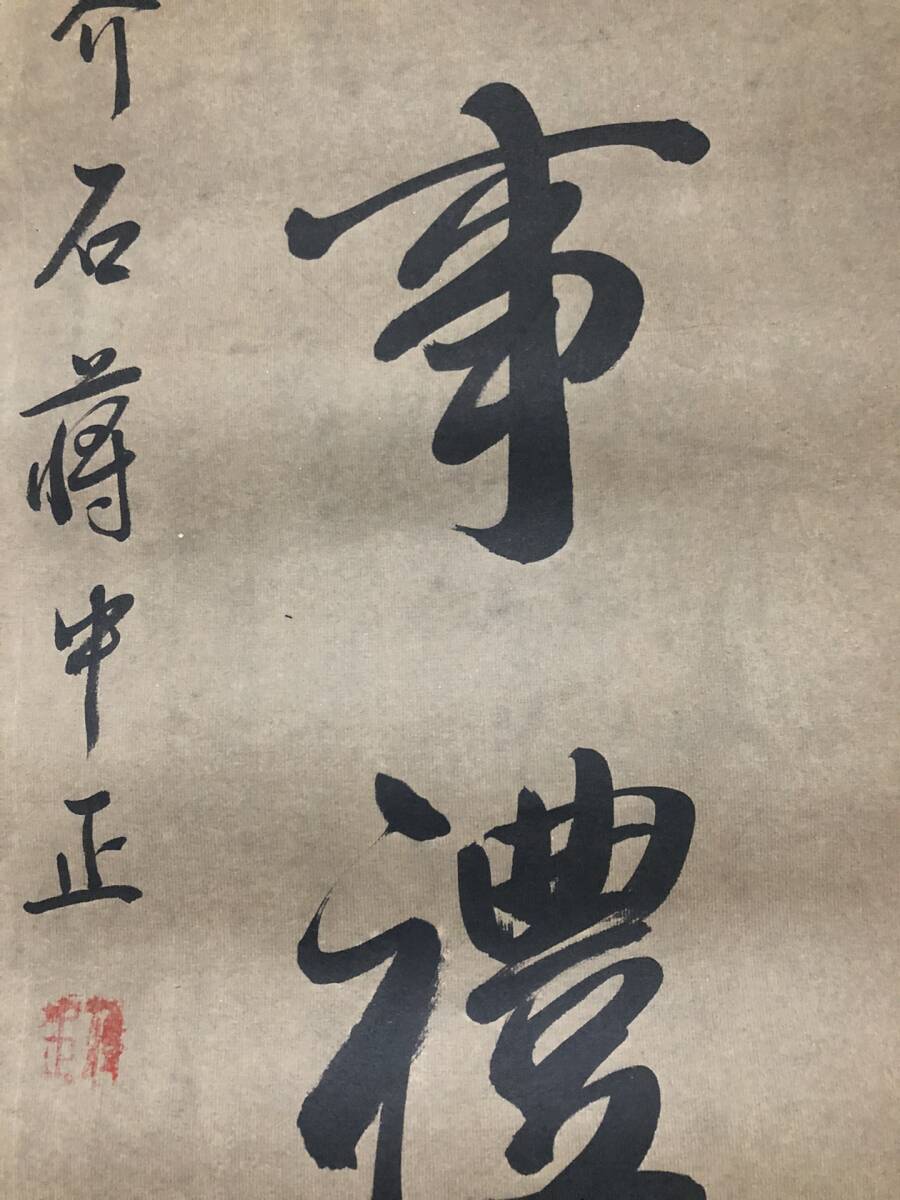 事禮
介石蔣中正